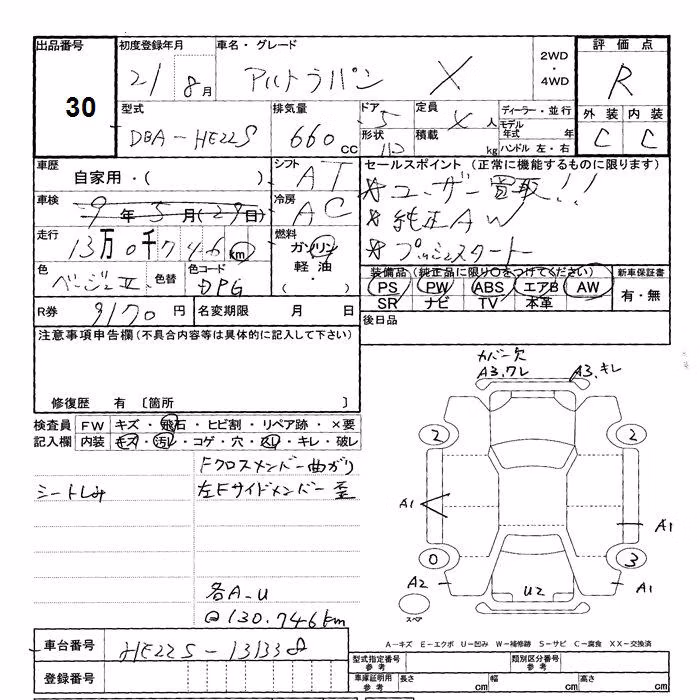 出品番号 初度登録年月 車名・グレード 2WD・4WD 評価点
30 21 8月 アルトラパン X R
型式 排気量 ドア 5 定員 人 ディーラー・並行 外装 内装
DBA-HE22S 660cc 形状 積載 kg モデル年式 年 C C
ハンドル 左・右
車歴 自家用・( ) シフト AT セールスポイント (正常に機能するものに限ります)
車検 9年5月(29日) 冷房 AC ※ユーザー買取!!
※純正AW
走行 13万0千746km 燃料 ガソリン ※プッシュスタート
軽油・( )
色 ベージュII 色替 色コード 装備品(純正品に限り○をつけてください) 新車保証書
PS PW ABS エアB AW 有・無
SR ナビ TV 本革
R券 9170円 名変期限 月 日 後日品
注意事項申告欄(不具合内容等は具体的に記入して下さい)
修復歴 有 〔箇所 〕
検査員記入欄 FW キズ・飛石・ヒビ割・リペア跡・×要
内装 キズ・汚レ・コゲ・穴・スレ・キレ・破レ
Fクロスメンバー曲がり
シートしみ 左Fサイドメンバー歪
各A-U
@130.746km
カバー欠
A3.ワレ A3.キレ
2 2
A1 A1
0 3
A2 U2 A1
スペア
車台番号 HE22S-131338
登録番号
A-キズ E-エクボ U-凹み W-補修跡 S-サビ C-腐食 XX-交換済
型式指定番号参考 類別区分番号参考
車庫証明用参考 長さ cm 幅 cm 高さ cm